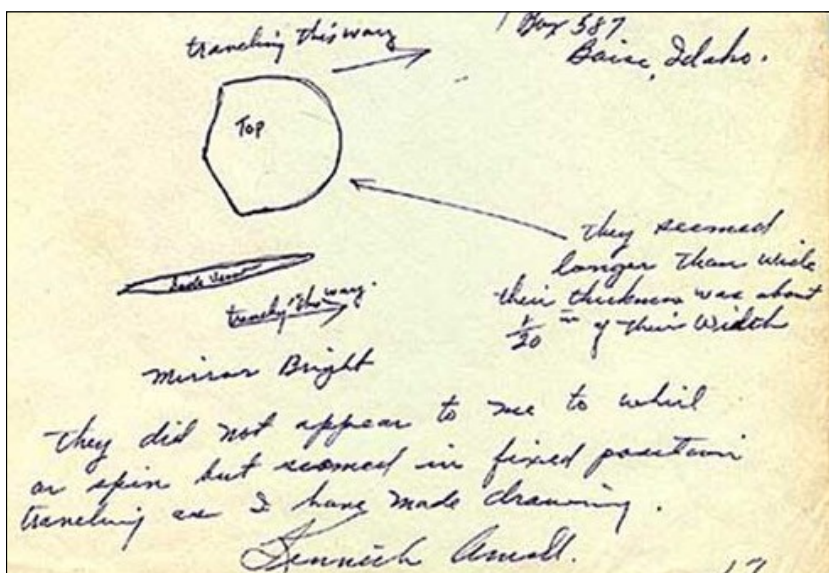 traveling this way
Box 587
Boise, Idaho.
Top
they seemed
longer than wide
their thickness was about
1/20 th of their width
side view
traveling this way.
Mirror Bright
they did not appear to me to whirl
or spin but seemed in fixed position
traveling as I have made drawing.
Kenneth Arnold.
17